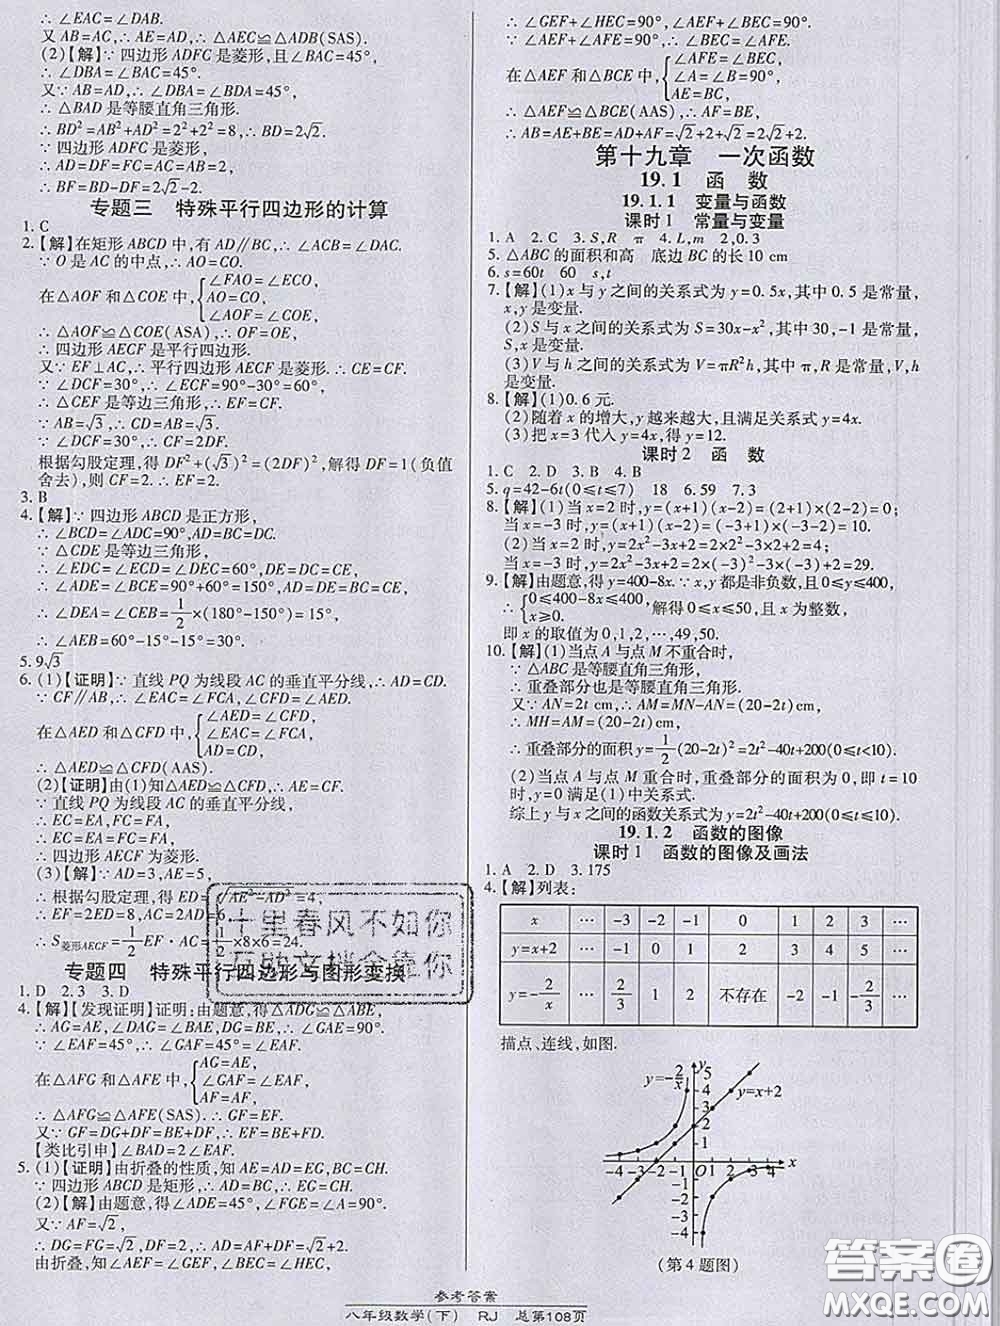 ∴ ∠EAC=∠DAB.
又 AB=AC,∴ AE=AD,∴ △AEC≌△ADB(SAS).
(2)【解】∵ 四边形 ADFC 是菱形,且∠BAC=45°,
∴ ∠DBA=∠BAC=45°.
又∵ AB=AD,∴ ∠DBA=∠BDA=45°,
∴ △BAD 是等腰直角三角形.
∴ BD²=AB²+AD²=2²+2²=8,∴ BD=2√2.
∵ 四边形 ADFC 是菱形,
∴ AD=DF=FC=AC=AB=2,
∴ BF=BD-DF=2√2-2.
专题三 特殊平行四边形的计算
1. C
2.【解】在矩形 ABCD 中,有 AD∥BC,∴ ∠FAC=∠ACB.
∵ O 是 AC 的中点,∴ AO=CO.
在△AOF 和△COE 中,{∠FAO=∠ECO,
AO=CO,
∠AOF=∠COE,
∴ △AOF≌△COE(ASA),∴ OF=OE,
∴ 四边形 AECF 是平行四边形.
又∵ EF⊥AC,∴ 平行四边形 AECF 是菱形.∴ CE=CF.
∵ ∠DCF=30°,∴ ∠ECF=90°-30°=60°,
∴ △CEF 是等边三角形,∴ EF=CF.
∵ AB=√3,∴ CD=AB=√3.
∵ ∠DCF=30°,∴ CF=2DF.
根据勾股定理,得 DF²+(√3)²=(2DF)²,解得 DF=1(负值
舍去),则 CF=2.∴ EF=CF=2.
3. B
4.【解】∵ 四边形 ABCD 是正方形,
∴ ∠BCD=∠ADC=90°,AD=BC=DC.
∵ △CDE 是等边三角形,
∴ ∠EDC=∠ECD=∠DEC=60°,DE=DC=CE,
∴ ∠ADE=∠BCE=90°+60°=150°,AD=DE=BC=CE,
∴ ∠DEA=∠CEB=1/2×(180°-150°)=15°,
∴ ∠AEB=60°-15°-15°=30°.
5. 9√3
6. (1)【证明】∵ 直线 PQ 为线段 AC 的垂直平分线,∴ AD=CD.
∵ CF∥AB,∴ ∠EAC=∠FCA,∠CFD=∠AED.
在△AED 和△CFD 中,{∠AED=∠CFD,
∠EAC=∠FCA,
AD=CD,
∴ △AED≌△CFD(AAS).
(2)【证明】由(1)知△AED≌△CFD,∴ AE=CF.
∵ 直线 PQ 为线段 AC 的垂直平分线,
∴ EC=EA,FC=FA,
∴ EC=EA=FC=FA,
∴ 四边形 AECF 为菱形.
(3)【解】∵ AD=3,AE=5,
∴ 根据勾股定理,得 ED=√AE²-AD²=4,
∴ EF=2ED=8,AC=2AD=6,
∴ S菱形AECF=1/2EF·AC=1/2×8×6=24.
十里春风不如你
互助文档全靠你
专题四 特殊平行四边形与图形变换
1. D 2. 3 3. D
4.【解】【发现证明】证明:由题意,得△ADG≌△ABE,
∴ AG=AE,∠DAG=∠BAE,DG=BE,∴ ∠GAE=90°.
∵ ∠EAF=45°,∴ ∠GAF=∠EAF=45°.
在△AFG 和△AFE 中,{AG=AE,
∠GAF=∠EAF,
AF=AF,
∴ △AFG≌△AFE(SAS).∴ GF=EF.
又∵ GF=DG+DF=BE+DF,∴ EF=BE+FD.
【类比引申】∠BAD=2∠EAF.
5. (1)【证明】由折叠的性质,知 AE=AD=EG,BC=CH.
∵ 四边形 ABCD 是矩形,∴ AD=BC,∴ EG=CH.
(2)【解】由题意,得∠ADE=45°,∠FGE=∠A=90°.
又∵ AF=√2,
∴ DG=FG=√2,DF=2,∴ AD=AF+DF=√2+2.
由折叠,知∠AEF=∠GEF,∠BEC=∠HEC,
∴ ∠GEF+∠HEC=90°,∠AEF+∠BEC=90°.
∵ ∠AEF+∠AFE=90°,∴ ∠BEC=∠AFE.
在△AEF 和△BCE 中,{∠AFE=∠BEC,
∠A=∠B=90°,
AE=BC,
∴ △AEF≌△BCE(AAS),∴ AF=BE,
∴ AB=AE+BE=AD+AF=√2+2+√2=2√2+2.
第十九章 一次函数
19.1 函 数
19.1.1 变量与函数
课时1 常量与变量
1. A 2. C 3. S,R π 4. L,m 2,0.3
5. △ABC 的面积和高 底边 BC 的长 10 cm
6. s=60t 60 s,t
7.【解】(1)x 与 y 之间的关系式为 y=0.5x,其中 0.5 是常量,
x,y 是变量.
(2)S 与 x 之间的关系式为 S=30x-x²,其中 30,-1 是常量,
S,x 是变量.
(3)V 与 h 之间的关系式为 V=πR²h,其中 π,R 是常量,V,h
是变量.
8.【解】(1)0.6 元.
(2)随着 x 的增大,y 越来越大,且满足关系式 y=4x.
(3)把 x=3 代入 y=4x,得 y=12.
课时2 函 数
1. C 2. D 3. B 4. B
5. q=42-6t(0≤t≤7) 18 6. 59 7. 3
8.【解】(1)当 x=2 时,y=(x+1)(x-2)=(2+1)×(2-2)=0;
当 x=-3 时,y=(x+1)(x-2)=(-3+1)×(-3-2)=10.
(2)当 x=2 时,y=2x²-3x+2=2×2²-3×2+2=4;
当 x=-3 时,y=2x²-3x+2=2×(-3)²-3×(-3)+2=29.
9.【解】由题意,得 y=400-8x.∵ x,y 都是非负数,且 0≤y≤400,
∴ {0≤400-8x≤400,
0≤x, 解得 0≤x≤50,且 x 为整数,
即 x 的取值为 0,1,2,…,49,50.
10.【解】(1)当点 A 与点 M 不重合时,
∵ △ABC 是等腰直角三角形,
∴ 重叠部分也是等腰直角三角形.
又∵ AN=2t cm,∴ AM=MN-AN=(20-2t)cm,
∴ MH=AM=(20-2t)cm,
∴ 重叠部分的面积 y=1/2(20-2t)²=2t²-40t+200(0≤t<10).
(2)当点 A 与点 M 重合时,重叠部分的面积为 0,即 t=10
时,y=0 满足(1)中关系式.
综上 y 与 x 之间的函数关系式为 y=2t²-40t+200(0≤t≤10).
19.1.2 函数的图像
课时1 函数的图像及画法
1. A 2. D 3. 175
4.【解】列表:
x … -3 -2 -1 0 1 2 3 …
y=x+2 … -1 0 1 2 3 4 5 …
y=-2/x … 2/3 1 2 不存在 -2 -1 -2/3 …
描点、连线,如图.
y=-2/x
y=x+2
y
5
4
3
2
1
-4 -3 -2 -1 O 1 2 3 4 x
-1
-2
-3
-4
(第 4 题图)
参考答案
八年级数学(下) RJ 总第108页
答案圈
MXQE.COM